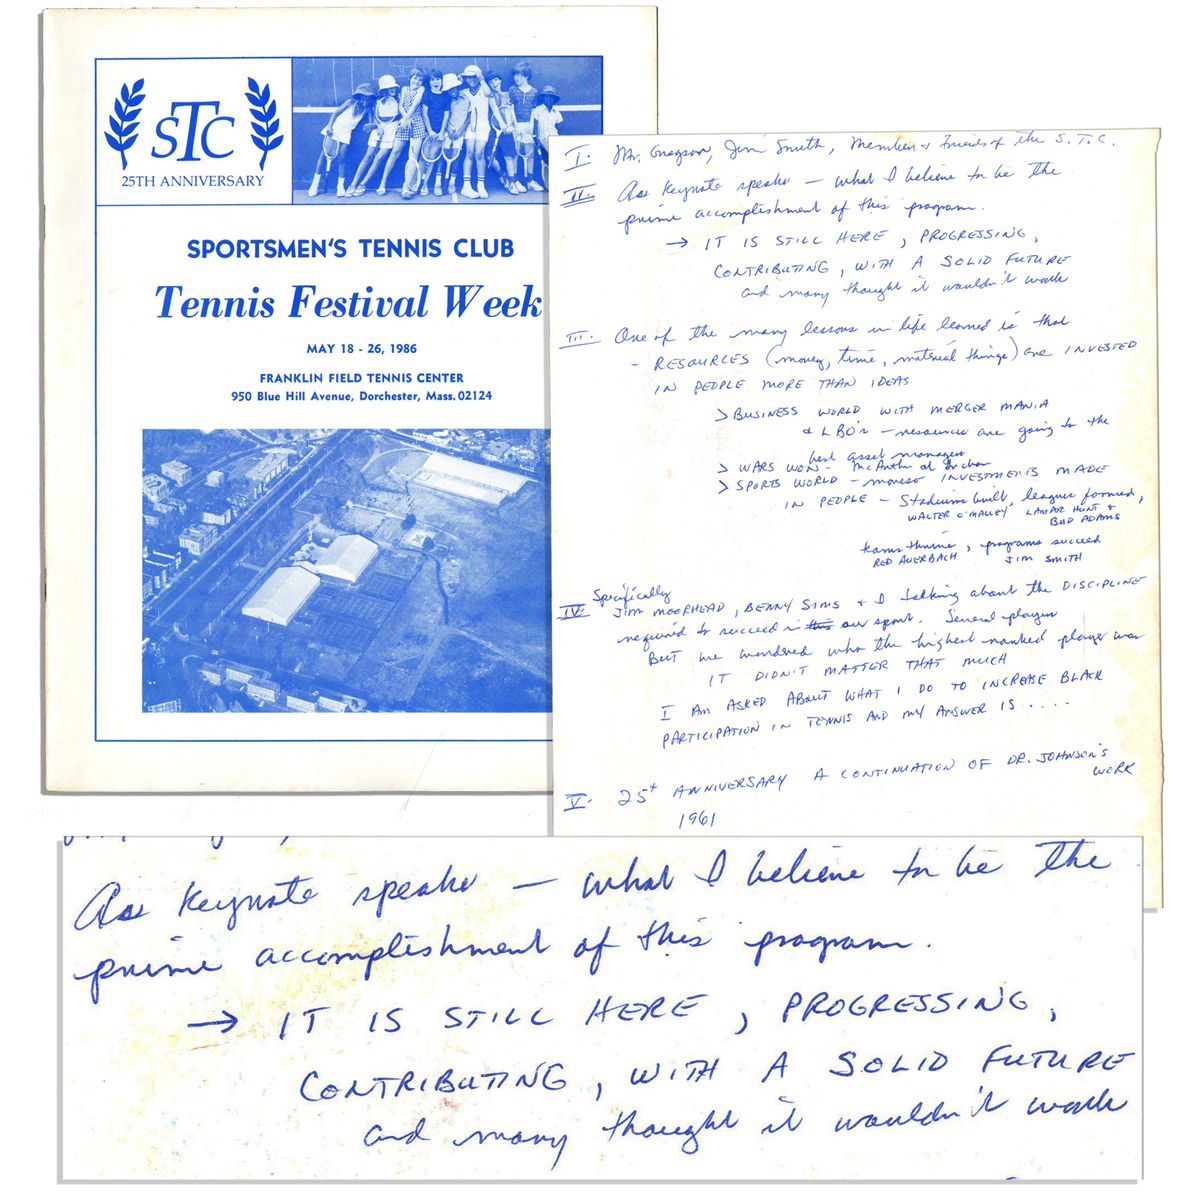 STC
25TH ANNIVERSARY
SPORTSMEN'S TENNIS CLUB
Tennis Festival Week
MAY 18 - 26, 1986
FRANKLIN FIELD TENNIS CENTER
950 Blue Hill Avenue, Dorchester, Mass. 02124
I. Mr. Gregson, Jim Smith, Members & Friends of the S.T.C.
II. As Keynote speaker — what I believe to be the
prime accomplishment of this program.
→ IT IS STILL HERE, PROGRESSING,
CONTRIBUTING, WITH A SOLID FUTURE
and many thought it wouldn't work
III. One of the many lessons in life learned is that
- RESOURCES (money, time, material things) are INVESTED
IN PEOPLE MORE THAN IDEAS
> BUSINESS WORLD WITH MERGER MANIA
& LBO's — resources are going to the
best asset managers
> WARS WON - McArthur at Inchon
> SPORTS WORLD - INVESTMENTS MADE
IN PEOPLE - Stadiums built, leagues formed,
WALTER O'MALLEY LAMAR HUNT &
BUD ADAMS
teams thrive, programs succeed
RED AUERBACH JIM SMITH
Specifically
IV. JIM MOORHEAD, BENNY SIMS & I talking about the DISCIPLINE
required to succeed in this our sport. Several players
But we wondered who the highest ranked player was
IT DIDN'T MATTER THAT MUCH
I AM ASKED ABOUT WHAT I DO TO INCREASE BLACK
PARTICIPATION IN TENNIS AND MY ANSWER IS ....
V. 25th ANNIVERSARY A CONTINUATION OF DR. JOHNSON'S
WORK
1961
As Keynote speaker — what I believe to be the
prime accomplishment of this program.
→ IT IS STILL HERE, PROGRESSING,
CONTRIBUTING, WITH A SOLID FUTURE
and many thought it wouldn't work